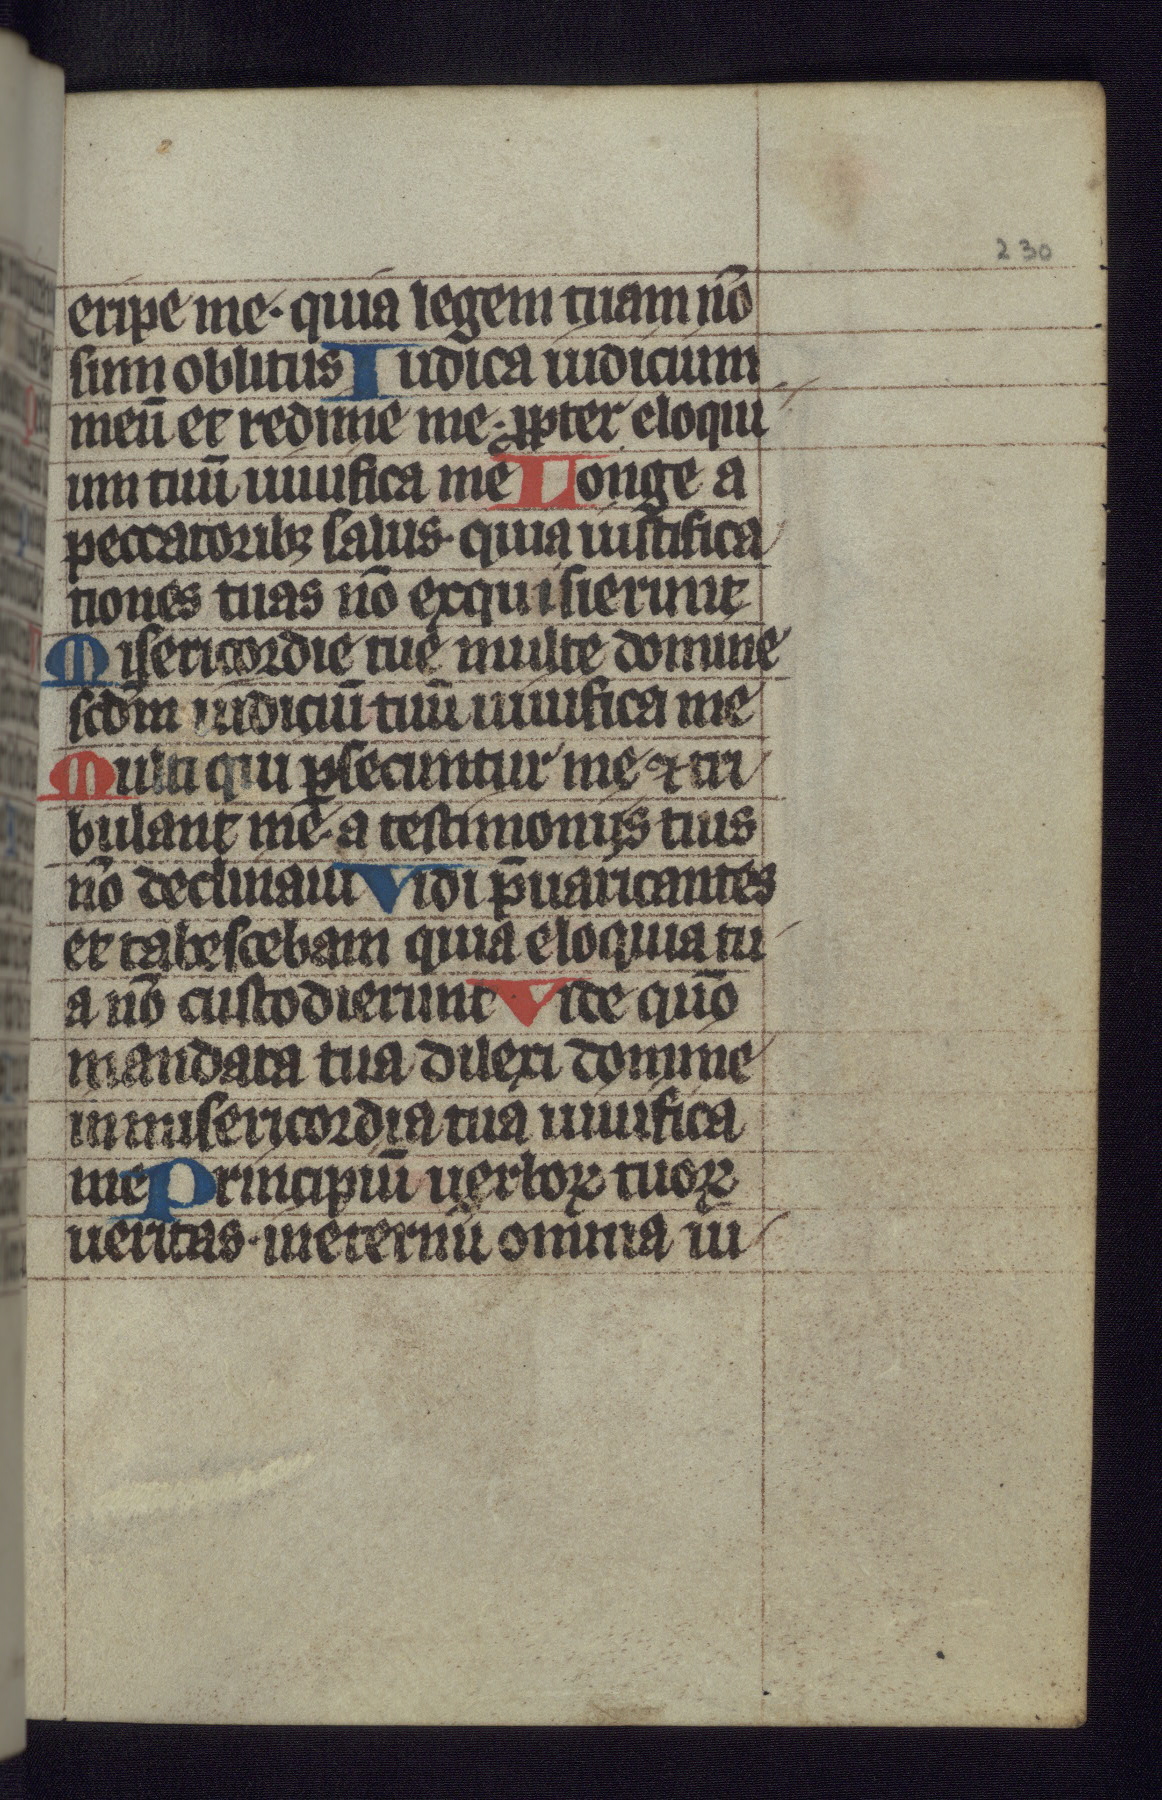 230
eripe me· quia legem tuam nō
sum oblitus Iudica iudicium
meū et redime me· ꝓpter eloqui
um tuū uiuifica me Longe a
peccatoribꝫ salus· quia iustifica
tiones tuas nō exquisierunt
Misericordie tue multe domine
scdm̄ iudiciū tuū uiuifica me
Multi qui ꝑsecuntur me ⁊ tri
bulant me· a testimonijs tuis
nō declinaui Vidi p̄uaricantes
et tabescebam quia eloquia tu
a nō custodierunt Vide quō
mandata tua dilexi domine
in misericordia tua uiuifica
me Principiū uerboꝝ tuoꝝ
ueritas· in eternū omnia iu